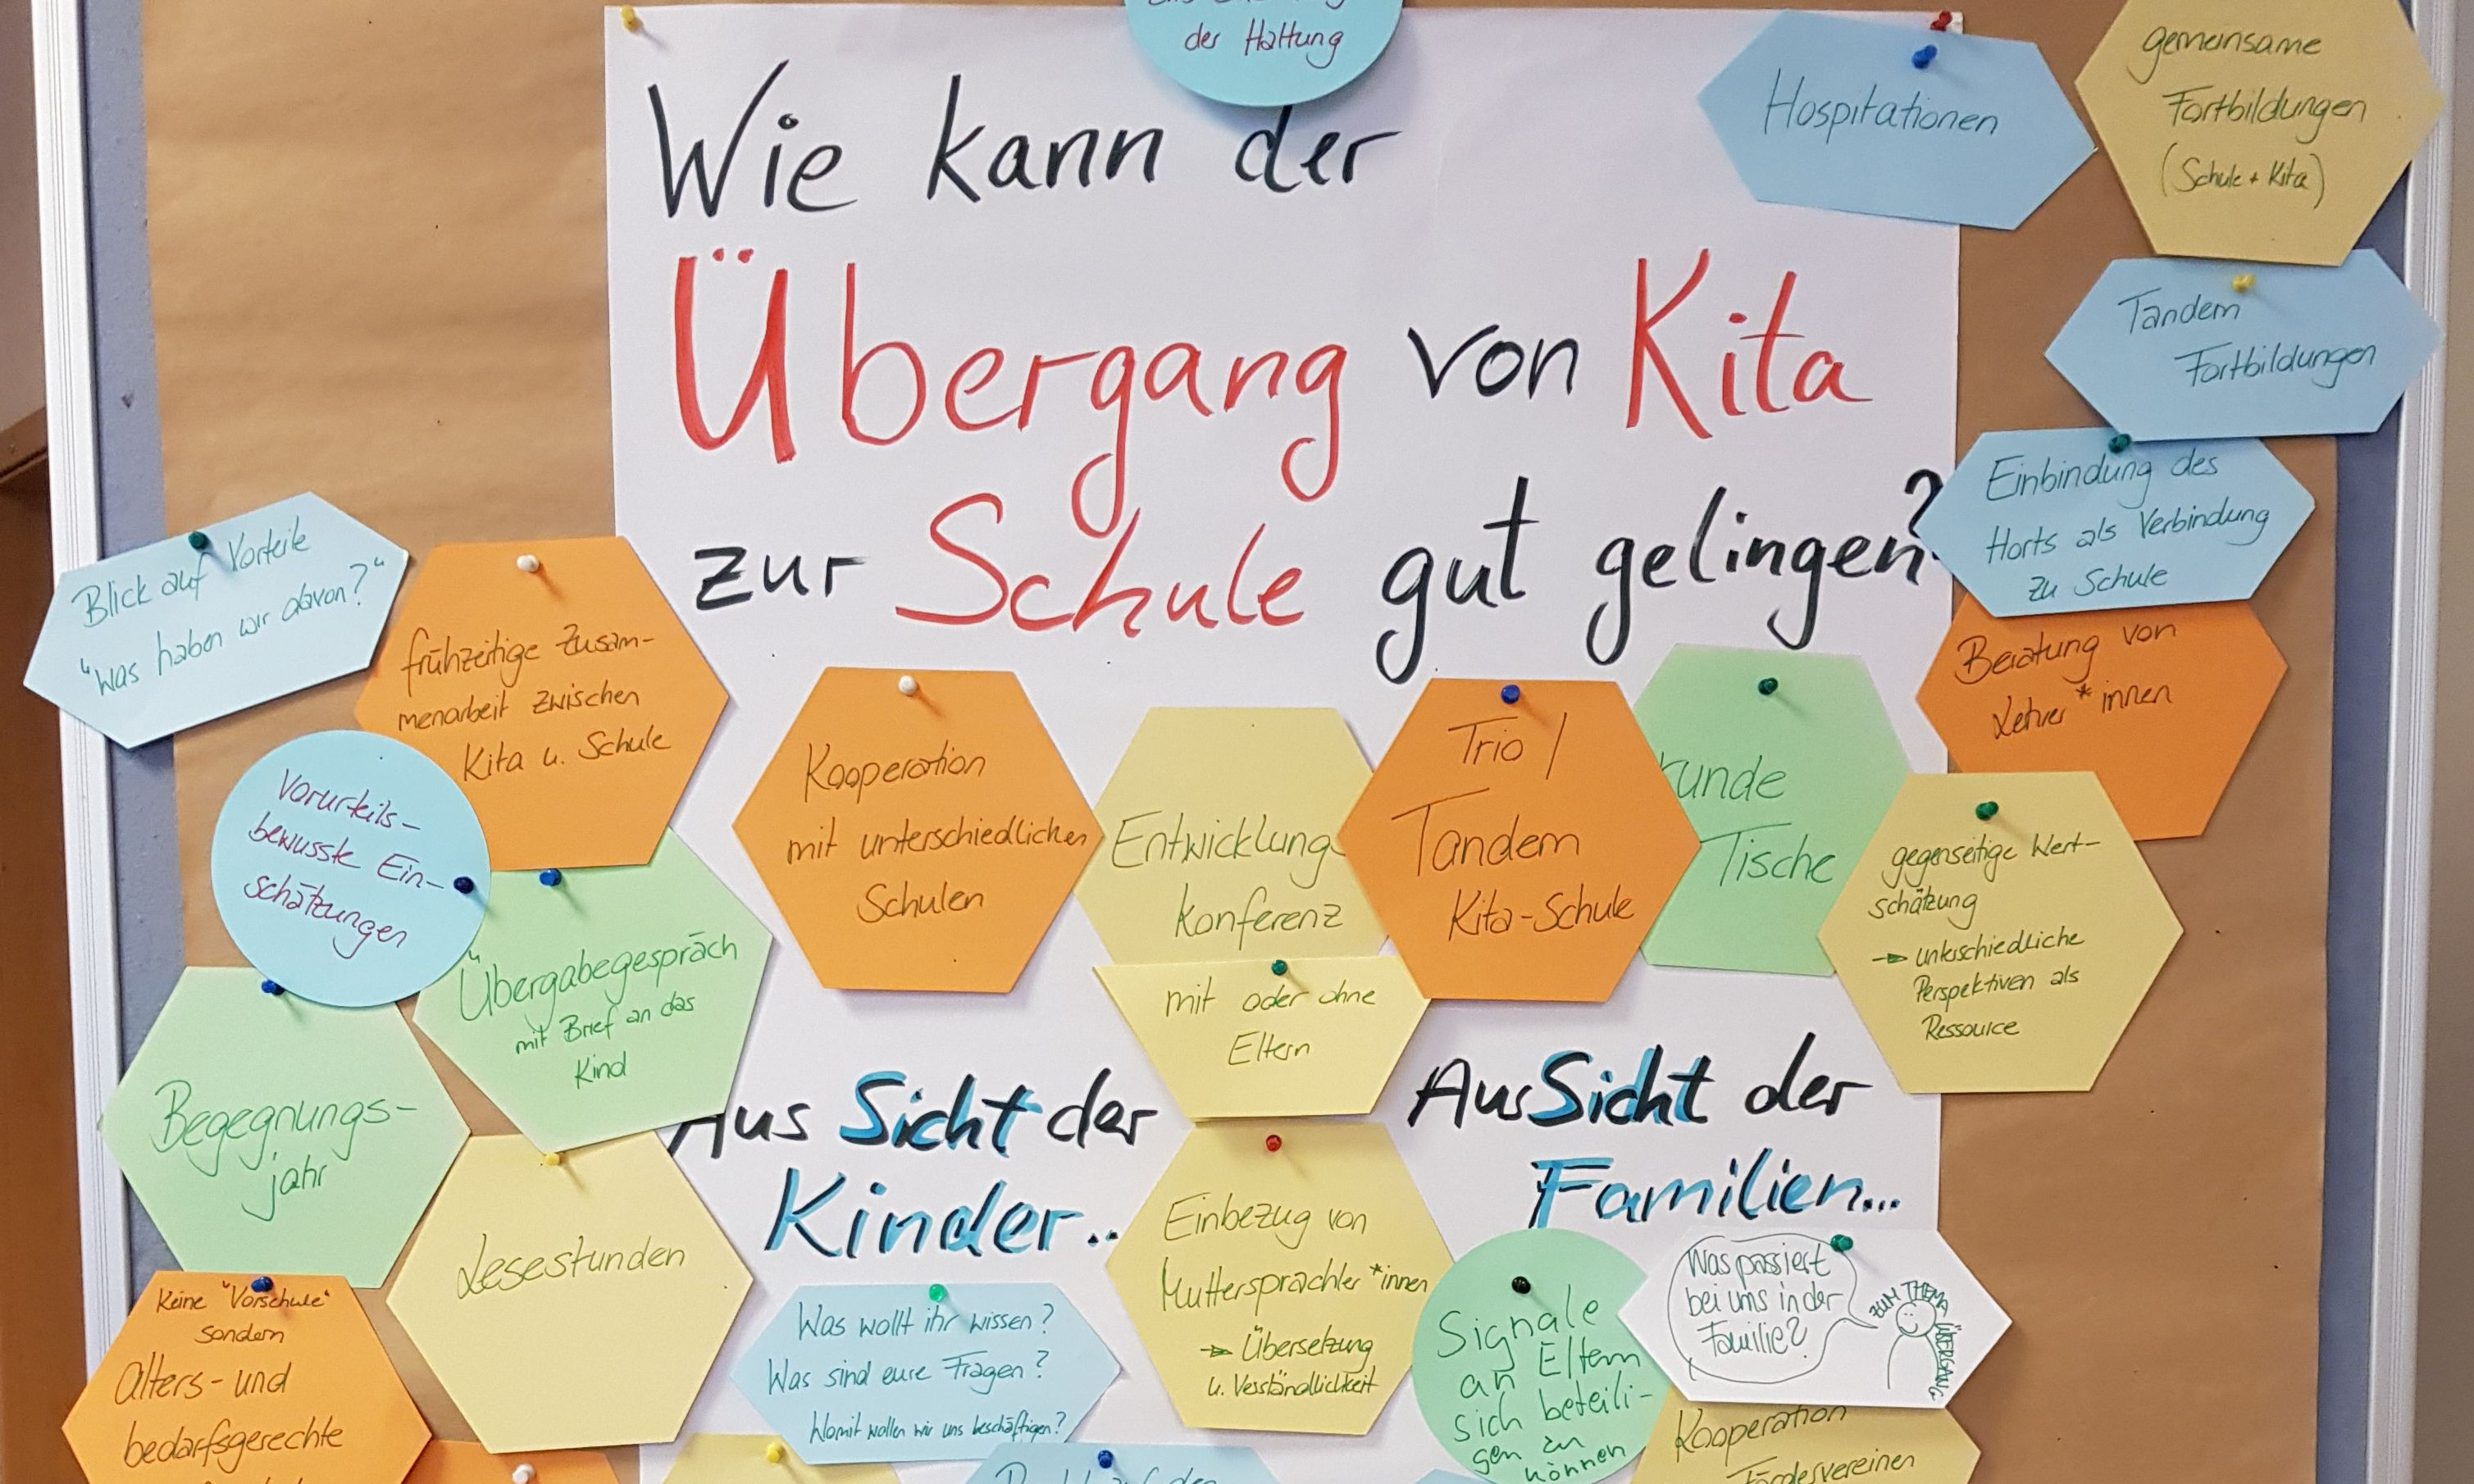 der Haltung
Wie kann der
Übergang von Kita
zur Schule gut gelingen?
Hospitationen
gemeinsame
Fortbildungen
(Schule + Kita)
Tandem
Fortbildungen
Einbindung des
Horts als Verbindung
zu Schule
Beratung von
Lehrer*innen
Blick auf Vorteile
"was haben wir davon?"
frühzeitige Zusam-
menarbeit zwischen
Kita u. Schule
Vorurteils-
bewusste Ein-
schätzungen
Kooperation
mit unterschiedlichen
Schulen
Entwicklung
konferenz
mit oder ohne
Eltern
Trio /
Tandem
Kita-Schule
runde
Tische
gegenseitige Wert-
schätzung
→ unterschiedliche
Perspektiven als
Ressource
Übergabegespräch
mit Brief an das
Kind
Begegnungs-
jahr
Lesestunden
Keine "Vorschule"
sondern
alters- und
bedarfsgerechte
Aus Sicht der
Kinder...
Was wollt ihr wissen?
Was sind eure Fragen?
Womit wollen wir uns beschäftigen?
Einbezug von
Muttersprachler*innen
→ Übersetzung
u. Verständlichkeit
Aus Sicht der
Familien...
Signale
an Eltern
sich beteili-
gen zu
können
Was passiert
bei uns in der
Familie?
ZUM THEMA ÜBERGANG
Kooperation
Fördervereinen